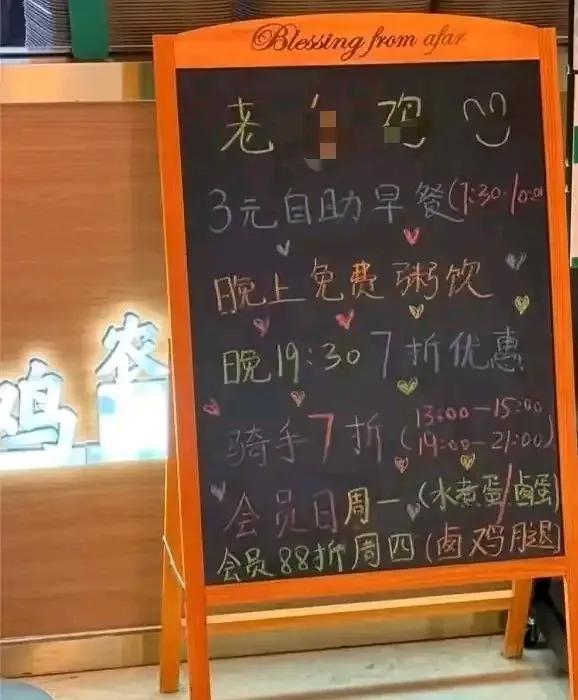 Blessing from afar
老
3元自助早餐(7:30-10:00
晚上免费粥饮
晚19:30 7折优惠
骑手7折(13:00—15:00
19:00—21:00)
会员日周一(水煮蛋/卤蛋)
会员88折周四(卤鸡腿)
农
鸡